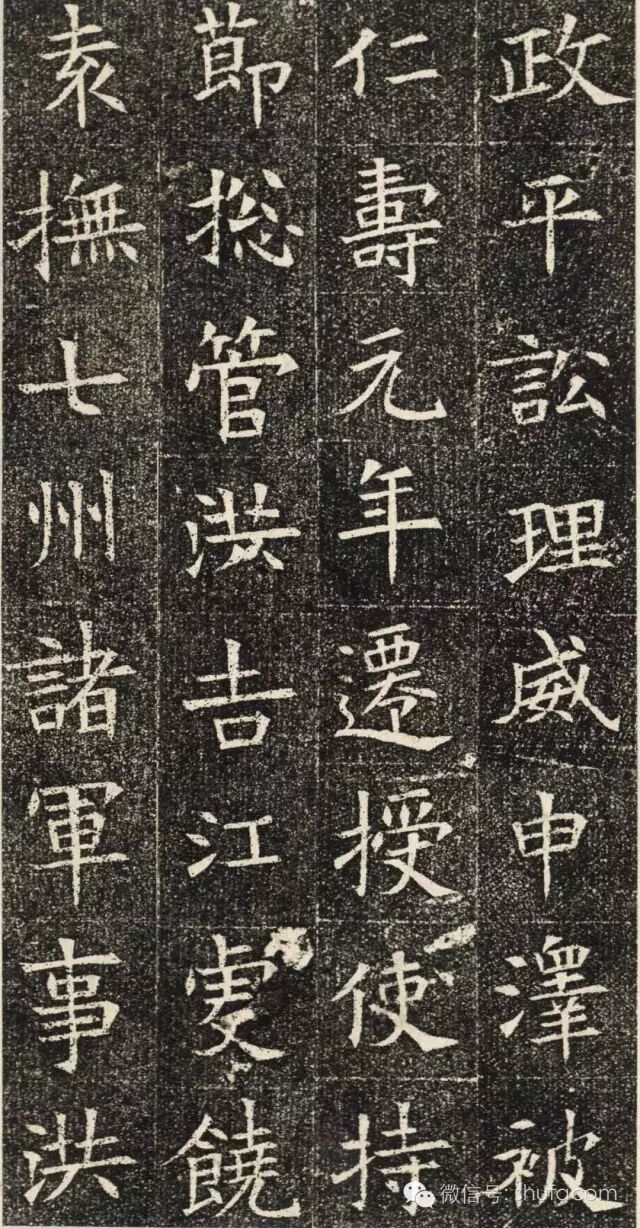 政平訟理威申澤被
仁壽元年遷授使持
莭揔管洪吉江虔饒
袁撫七州諸軍事洪
微信号: shufacom